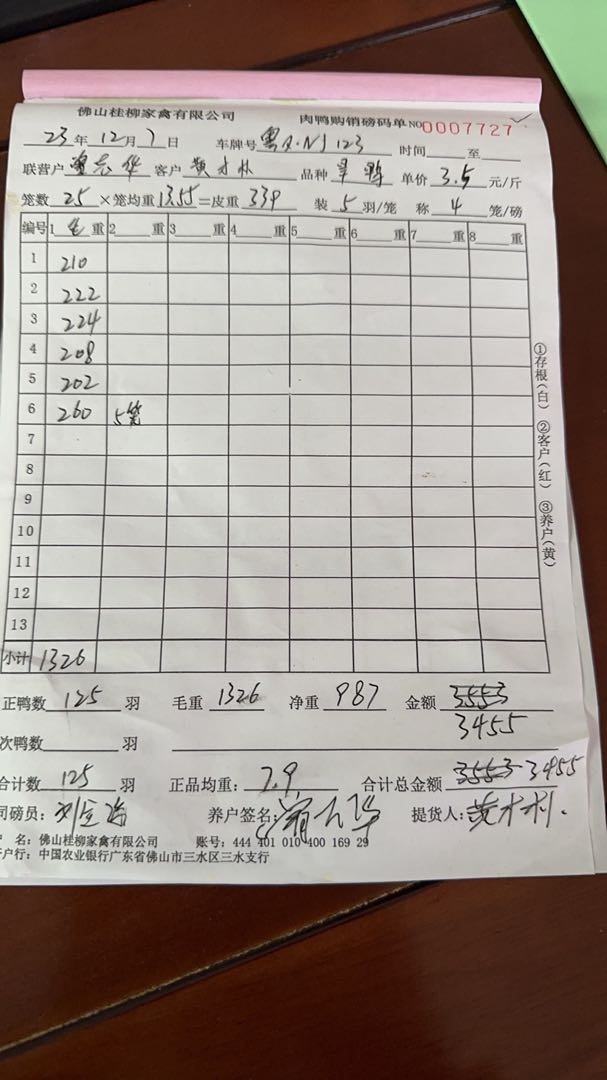 佛山桂柳家禽有限公司 肉鸭购销磅码单 NO 0007727
23年 12月 7日 车牌号 粤A·NJ123 时间 至
联营户 志华 客户 黄才林 品种 旱鸭 单价 3.5 元/斤
笼数 25 ×笼均重 1355 =皮重 339 装 5 羽/笼 称 4 笼/磅
编号 1 毛 重 2 重 3 重 4 重 5 重 6 重 7 重 8 重
1 210
2 222
3 224
4 208
5 202
6 260 5笼
7
8
9
10
11
12
13
小计 1326
①存根(白) ②客户(红) ③养户(黄)
正鸭数 125 羽 毛重 1326 净重 987 金额 3553
3455
次鸭数 羽
合计数 125 羽 正品均重: 7.9 合计总金额 3553 3455
司磅员: 刘 养户签名: 提货人: 黄才林.
名: 佛山桂柳家禽有限公司 账号: 444 401 010 400 169 29
户行: 中国农业银行广东省佛山市三水区三水支行